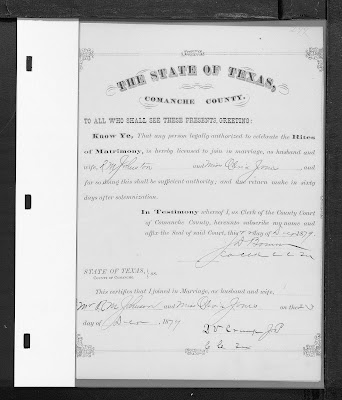 THE STATE OF TEXAS,
COMANCHE COUNTY.
TO ALL WHO SHALL SEE THESE PRESENTS, GREETING:
Know Ye, That any person legally authorized to celebrate the Rites
of Matrimony, is hereby licensed to join in marriage, as husband and
wife, R M Johnston and Miss Jones and
for so doing this shall be sufficient authority; and due return under in sixty
days after solemnization.
In Testimony whereof I, as Clerk of the County Court
of Comanche County, hereunto subscribe my name and
affix the Seal of said Court, this day of 1879
STATE OF TEXAS,
COUNTY OF COMANCHE, ss.
This certifies that I joined in Marriage, as husband and wife,
Mr R M Johnson and Miss Jones on the
day of 1879
J.P.